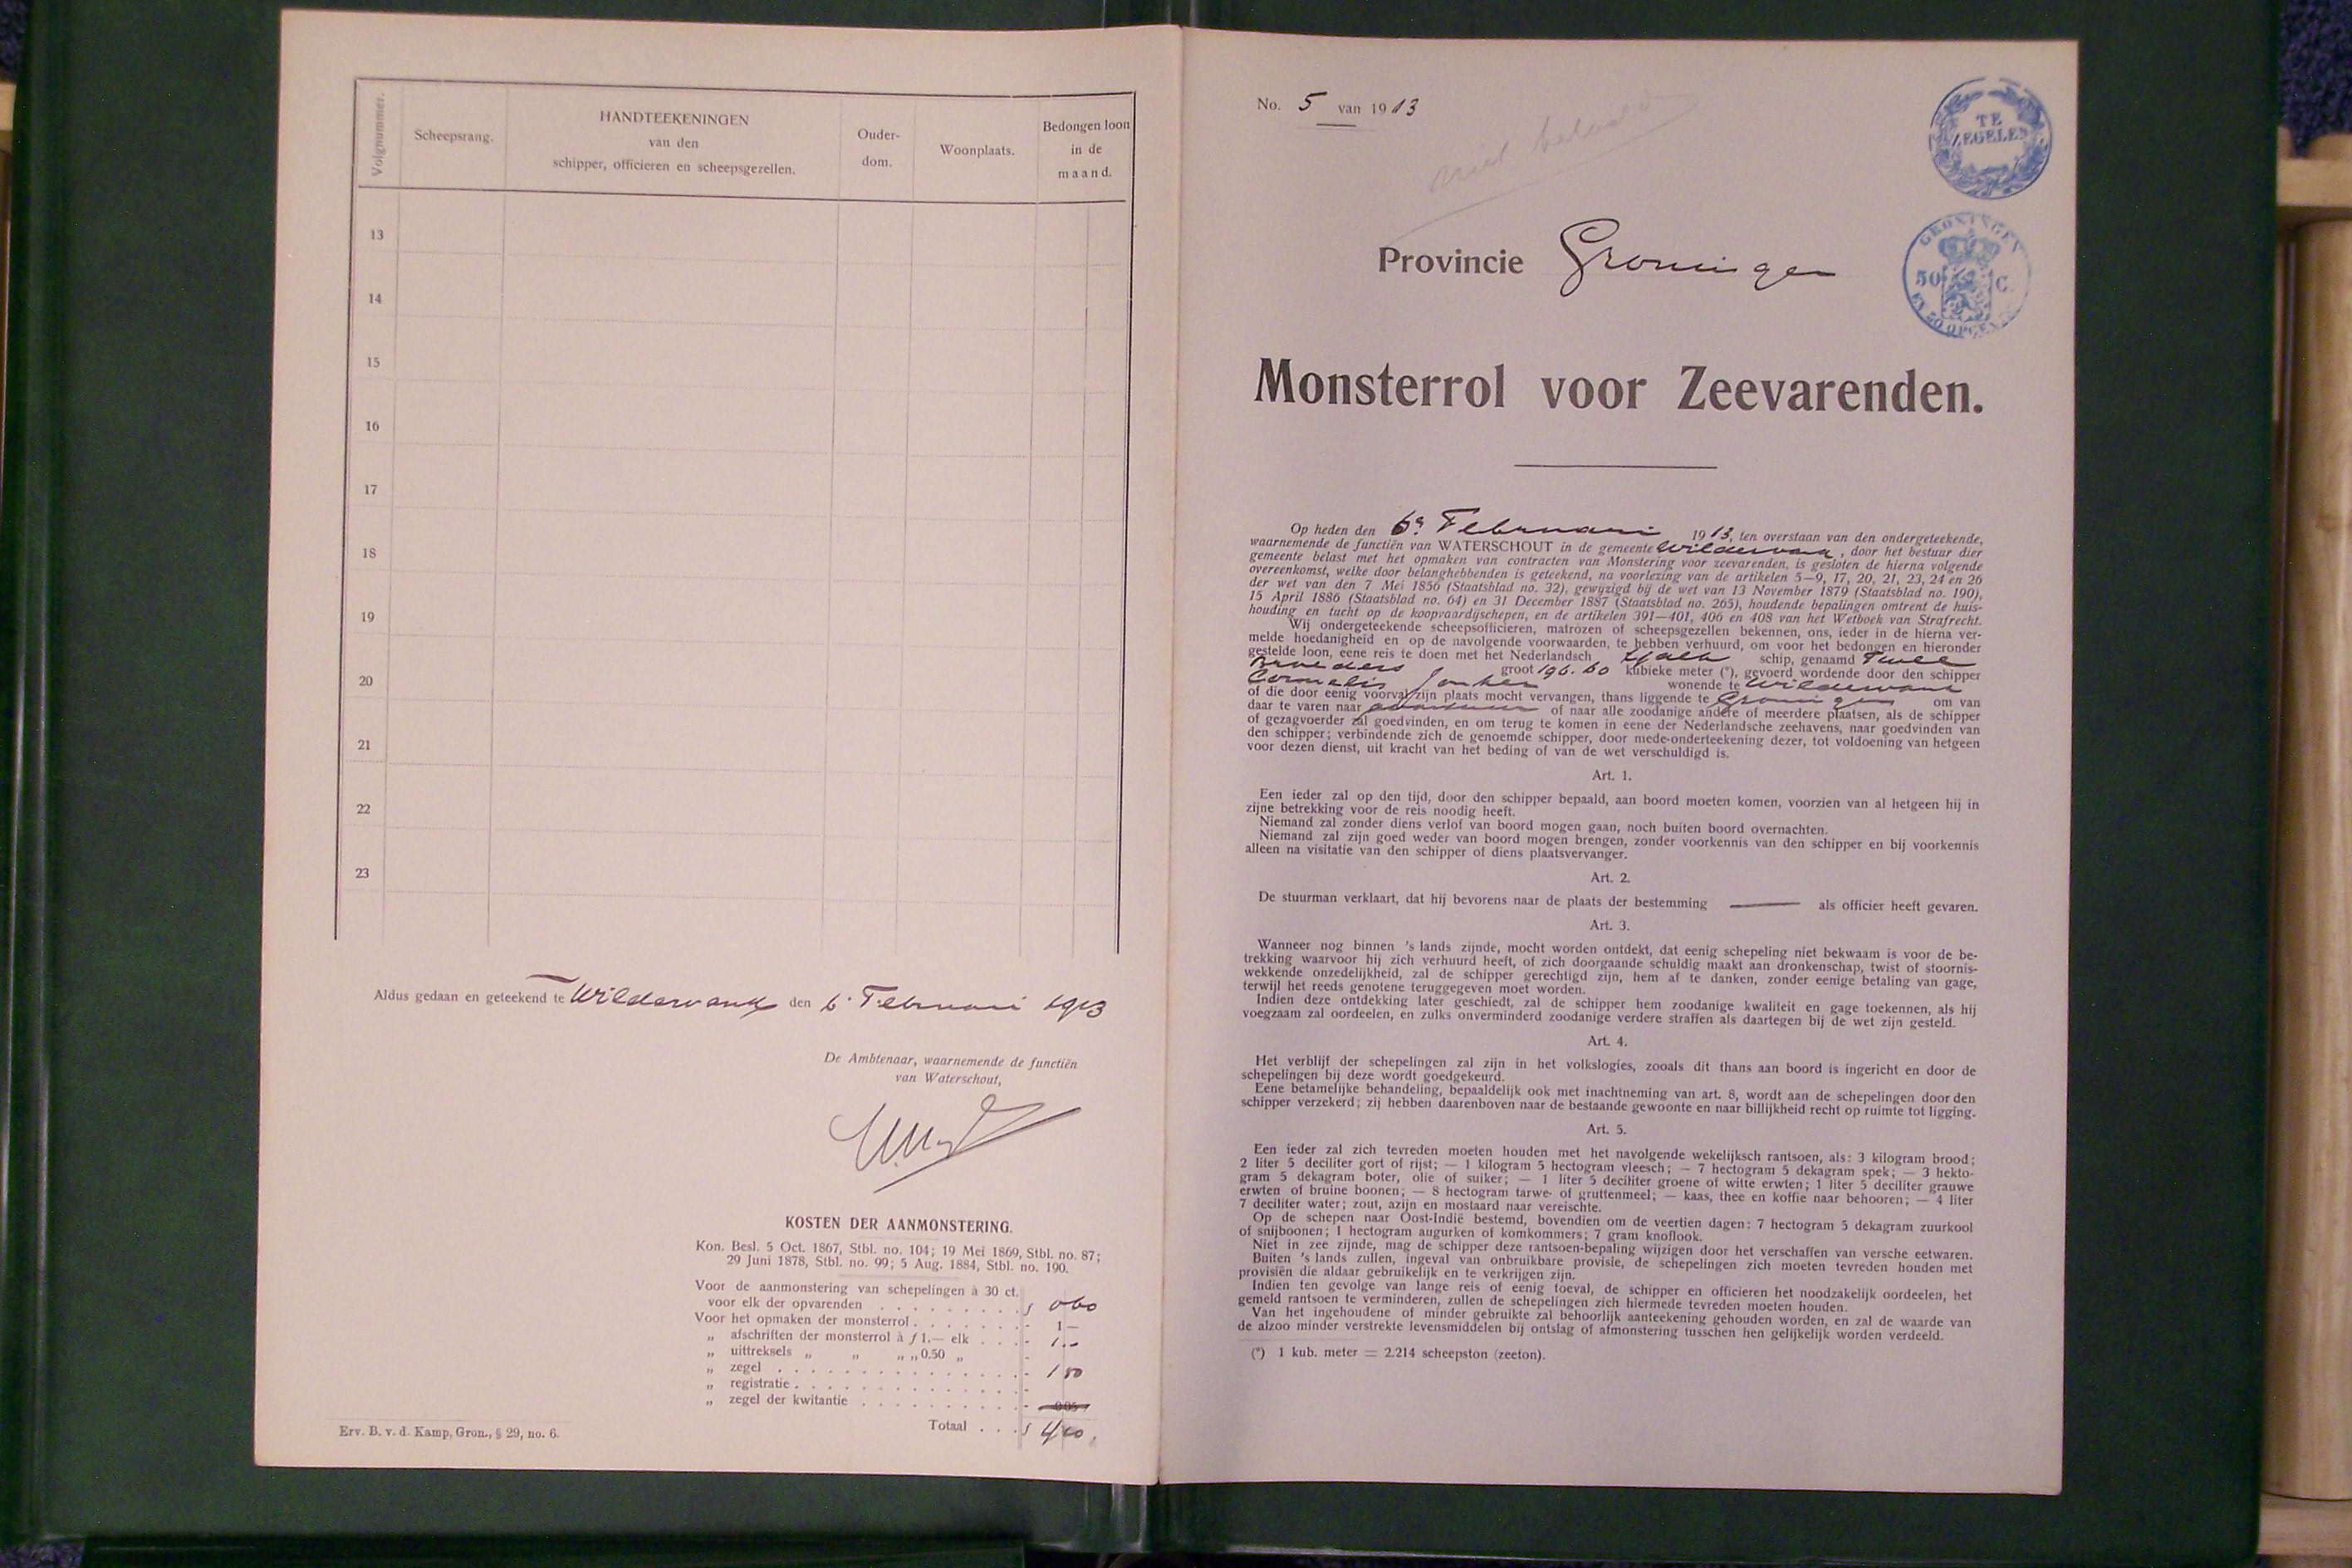 Volgnummer.
Scheepsrang.
HANDTEEKENINGEN
van den
schipper, officieren en scheepsgezellen.
Ouder-
dom.
Woonplaats.
Bedongen loon
in de
maand.
13
14
15
16
17
18
19
20
21
22
23
Aldus gedaan en geteekend te Wildervank den 6 Februari 1913
De Ambtenaar, waarnemende de functiën
van Waterschout,
KOSTEN DER AANMONSTERING.
Kon. Besl. 5 Oct. 1867, Stbl. no. 104; 19 Mei 1869, Stbl. no. 87;
29 Juni 1878, Stbl. no. 99; 5 Aug. 1884, Stbl. no. 190.
Voor de aanmonstering van schepelingen à 30 ct.
voor elk der opvarenden . . . . . . . . . . f 0 60
Voor het opmaken der monsterrol . . . . . . . - 1 —
„ afschriften der monsterrol à f 1.— elk . . . . - 1 . -
„ uittreksels „ „ „ „ 0.50 „ -
„ zegel . . . . . . . . . . . . . . . - 1 80
„ registratie . . . . . . . . . . . . . . -
„ zegel der kwitantie . . . . . . . . . . -
Totaal . . . f 4 40
Erv. B. v. d. Kamp, Gron., § 29, no. 6.
No. 5 van 1913
niet betaald
TE ZEGELEN
GRONINGEN
50 C.
EN 50 OPCEN
Provincie Groningen
Monsterrol voor Zeevarenden.
Op heden den 6e Februari 1913, ten overstaan van den ondergeteekende,
waarnemende de functiën van WATERSCHOUT in de gemeente Wildervank, door het bestuur dier
gemeente belast met het opmaken van contracten van Monstering voor zeevarenden, is gesloten de hierna volgende
overeenkomst, welke door belanghebbenden is geteekend, na voorlezing van de artikelen 5—9, 17, 20, 21, 23, 24 en 26
der wet van den 7 Mei 1856 (Staatsblad no. 32), gewijzigd bij de wet van 13 November 1879 (Staatsblad no. 190),
15 April 1886 (Staatsblad no. 64) en 31 December 1887 (Staatsblad no. 265), houdende bepalingen omtrent de huis-
houding en tucht op de koopvaardijschepen, en de artikelen 391—401, 406 en 408 van het Wetboek van Strafrecht.
Wij ondergeteekende scheepsofficieren, matrozen of scheepsgezellen bekennen, ons, ieder in de hierna ver-
melde hoedanigheid en op de navolgende voorwaarden, te hebben verhuurd, om voor het bedongen en hieronder
gestelde loon, eene reis te doen met het Nederlandsch tjalk schip, genaamd Twee
Broeders groot 196.60 kubieke meter (*), gevoerd wordende door den schipper
Cornelis Jonker wonende te Wildervank
of die door eenig voorval zijn plaats mocht vervangen, thans liggende te Groningen om van
daar te varen naar avontuur of naar alle zoodanige andere of meerdere plaatsen, als de schipper
of gezagvoerder zal goedvinden, en om terug te komen in eene der Nederlandsche zeehavens, naar goedvinden van
den schipper; verbindende zich de genoemde schipper, door mede-onderteekening dezer, tot voldoening van hetgeen
voor dezen dienst, uit kracht van het beding of van de wet verschuldigd is.
Art. 1.
Een ieder zal op den tijd, door den schipper bepaald, aan boord moeten komen, voorzien van al hetgeen hij in
zijne betrekking voor de reis noodig heeft.
Niemand zal zonder diens verlof van boord mogen gaan, noch buiten boord overnachten.
Niemand zal zijn goed weder van boord mogen brengen, zonder voorkennis van den schipper en bij voorkennis
alleen na visitatie van den schipper of diens plaatsvervanger.
Art. 2.
De stuurman verklaart, dat hij bevorens naar de plaats der bestemming ——— als officier heeft gevaren.
Art. 3.
Wanneer nog binnen 's lands zijnde, mocht worden ontdekt, dat eenig schepeling niet bekwaam is voor de be-
trekking waarvoor hij zich verhuurd heeft, of zich doorgaande schuldig maakt aan dronkenschap, twist of stoornis-
wekkende onzedelijkheid, zal de schipper gerechtigd zijn, hem af te danken, zonder eenige betaling van gage,
terwijl het reeds genotene teruggegeven moet worden.
Indien deze ontdekking later geschiedt, zal de schipper hem zoodanige kwaliteit en gage toekennen, als hij
voegzaam zal oordeelen, en zulks onverminderd zoodanige verdere straffen als daartegen bij de wet zijn gesteld.
Art. 4.
Het verblijf der schepelingen zal zijn in het volkslogies, zooals dit thans aan boord is ingericht en door de
schepelingen bij deze wordt goedgekeurd.
Eene betamelijke behandeling, bepaaldelijk ook met inachtneming van art. 8, wordt aan de schepelingen door den
schipper verzekerd; zij hebben daarenboven naar de bestaande gewoonte en naar billijkheid recht op ruimte tot ligging.
Art. 5.
Een ieder zal zich tevreden moeten houden met het navolgende wekelijksch rantsoen, als: 3 kilogram brood;
2 liter 5 deciliter gort of rijst; — 1 kilogram 5 hectogram vleesch; — 7 hectogram 5 dekagram spek; — 3 hekto-
gram 5 dekagram boter, olie of suiker; — 1 liter 5 deciliter groene of witte erwten; 1 liter 5 deciliter grauwe
erwten of bruine boonen; — 8 hectogram tarwe- of gruttenmeel; — kaas, thee en koffie naar behooren; — 4 liter
7 deciliter water; zout, azijn en mostaard naar vereischte.
Op de schepen naar Oost-Indië bestemd, bovendien om de veertien dagen: 7 hectogram 5 dekagram zuurkool
of snijboonen; 1 hectogram augurken of komkommers; 7 gram knoflook.
Niet in zee zijnde, mag de schipper deze rantsoen-bepaling wijzigen door het verschaffen van versche eetwaren.
Buiten 's lands zullen, ingeval van onbruikbare provisie, de schepelingen zich moeten tevreden houden met
provisiën die aldaar gebruikelijk en te verkrijgen zijn.
Indien ten gevolge van lange reis of eenig toeval, de schipper en officieren het noodzakelijk oordeelen, het
gemeld rantsoen te verminderen, zullen de schepelingen zich hiermede tevreden moeten houden.
Van het ingehoudene of minder gebruikte zal behoorlijk aanteekening gehouden worden, en zal de waarde van
de alzoo minder verstrekte levensmiddelen bij ontslag of afmonstering tusschen hen gelijkelijk worden verdeeld.
(*) 1 kub. meter = 2.214 scheepston (zeeton).